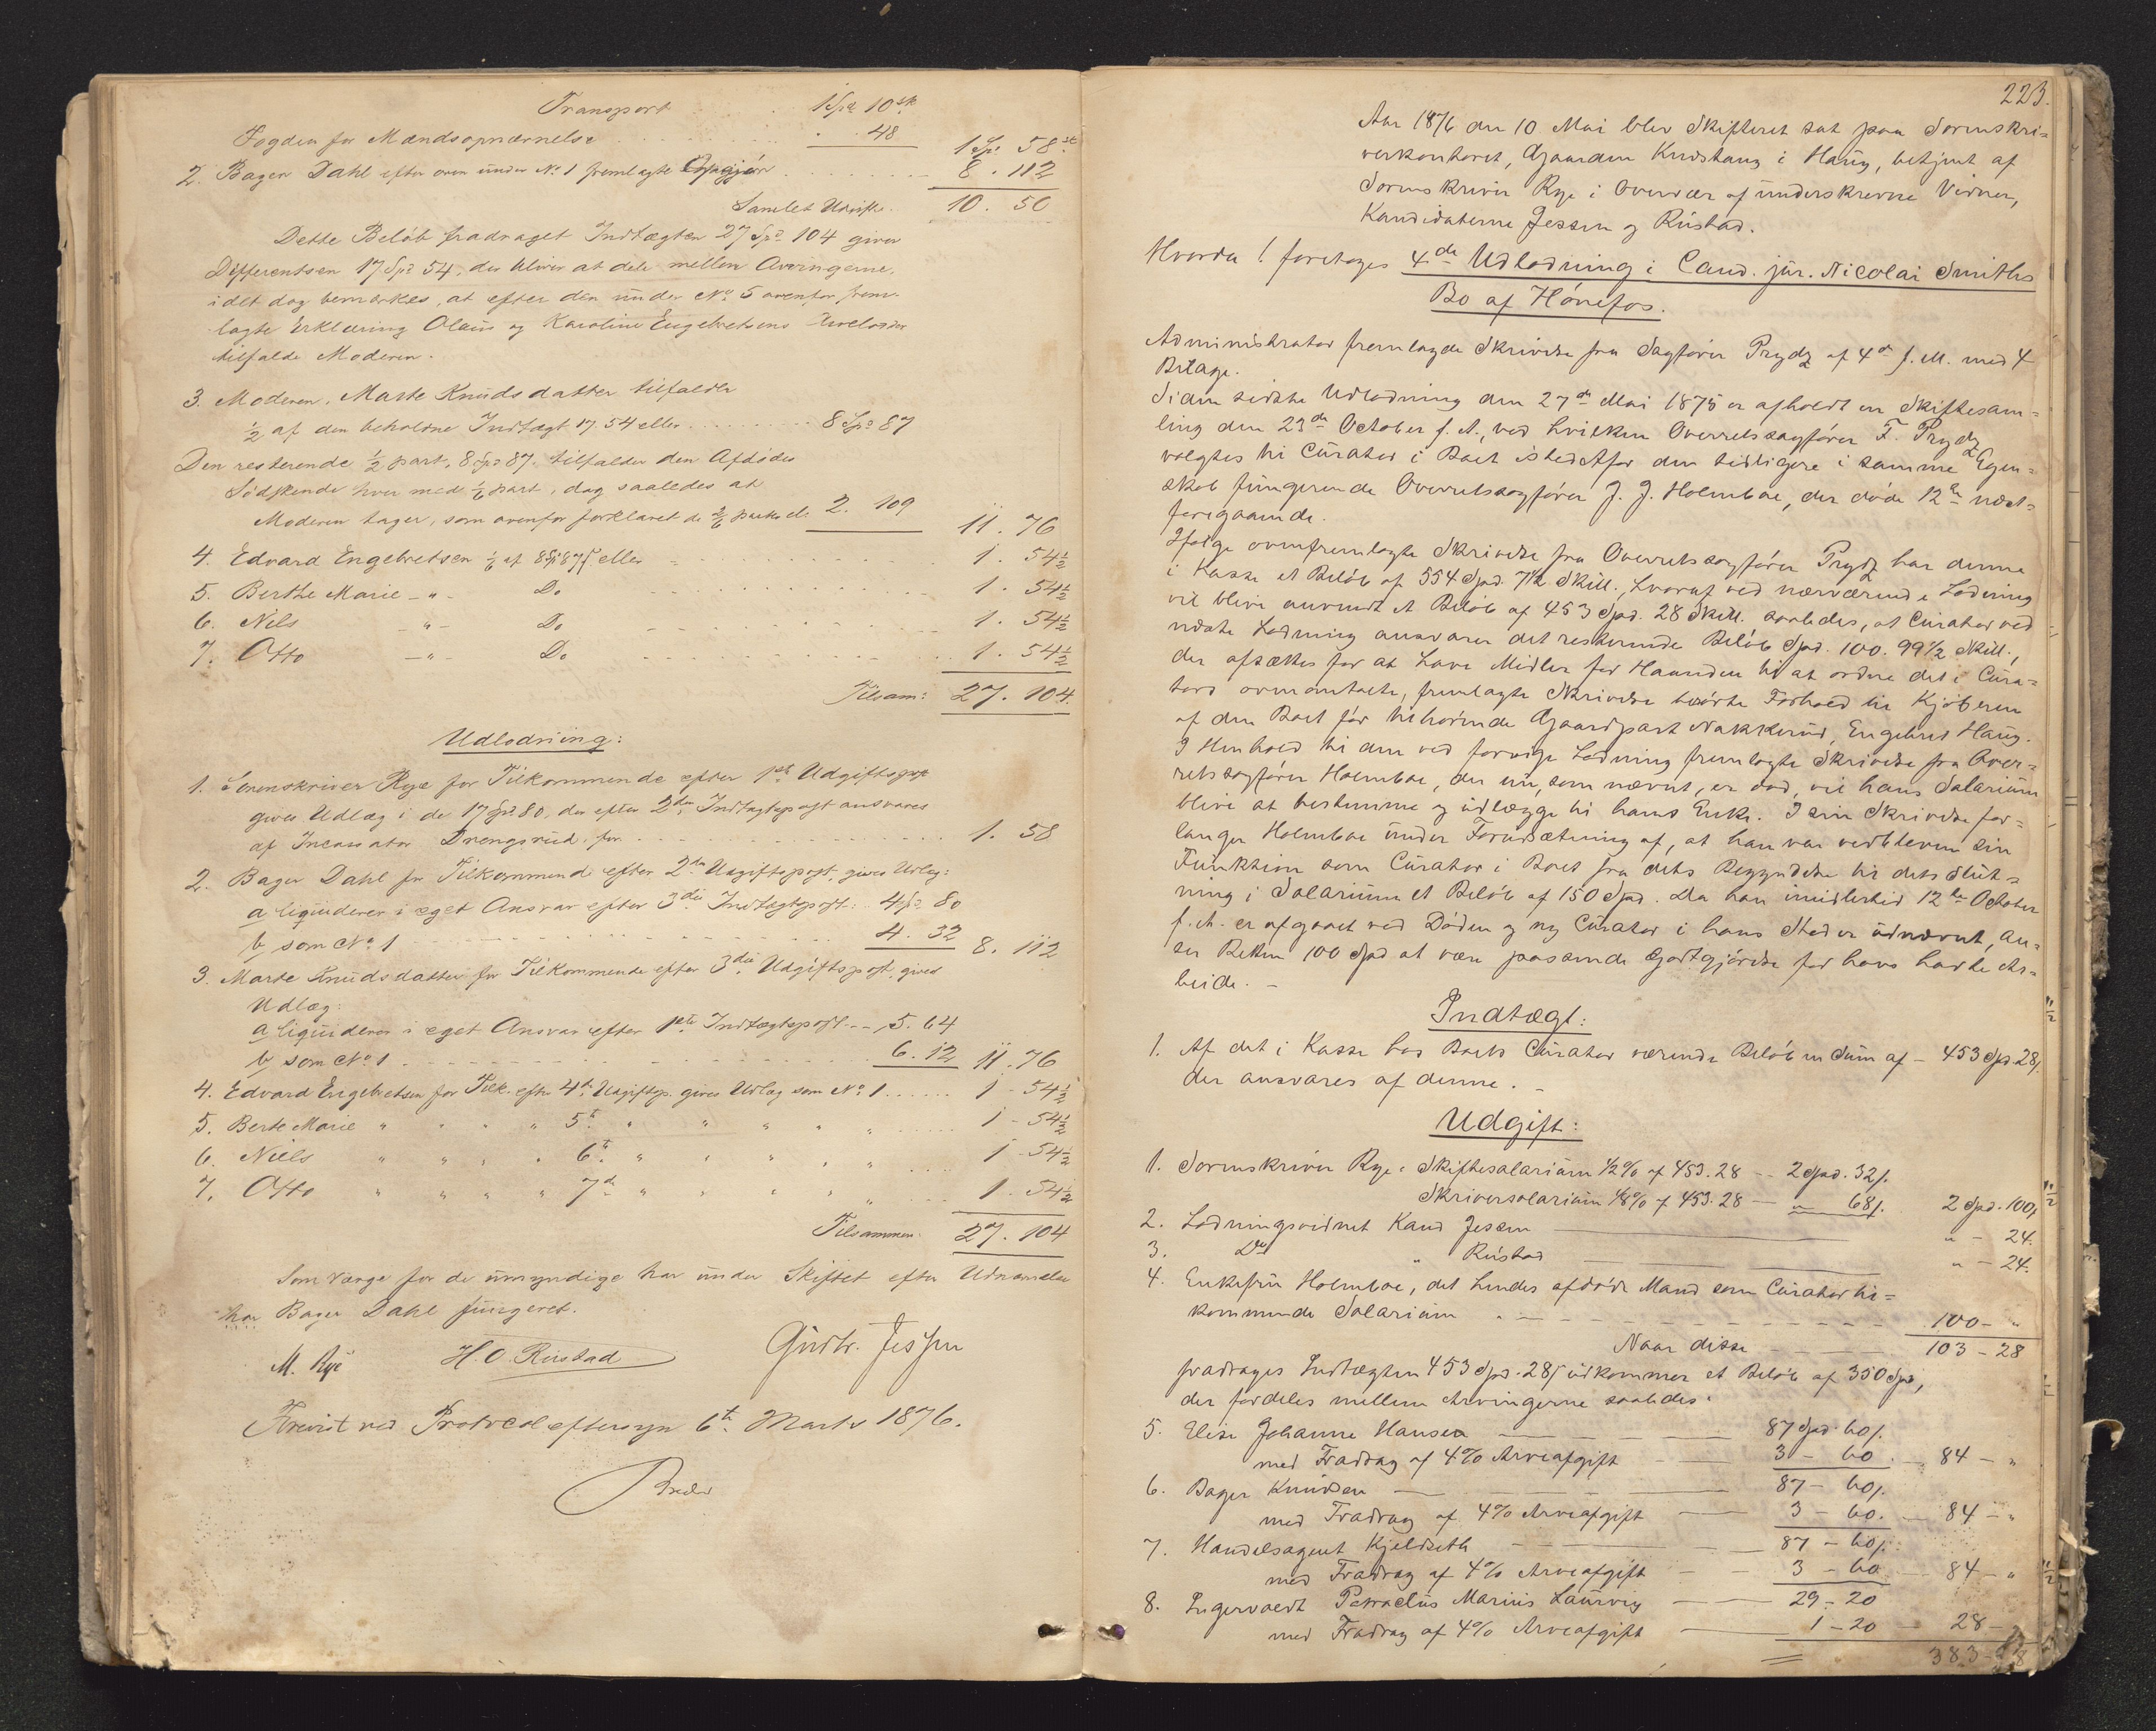 Transport . . . 1 Spd 10 sk
Fogden for Mændsopnævnelse . . . . 48 1 Sp. 58 sk
2. Bager Dahl efter oven under No 1 fremlagte Opgjør . . . . . . 8. 112
Samlet Udgift. 10. 50
Dette Beløb fradraget Indtægten 27 Spd 104 giver
Differentsen 17 Spd 54, der bliver at dele mellem Arvingerne,
idet dog bemærkes, at efter den under No 5 ovenfor frem-
lagte Erklæring Olaus og Karoline Engebretsens Arvelodder
tilfalde Moderen.
3. Moderen, Marte Knudsdatter tilfalder
½ af den beholdne Indtægt 17. 54 eller . . . . . . . 8 Spd 87
Den resterende ½ part, 8 Spd 87, tilfalder den Afdødes
Sødskende hver med ⅙ part, dog saaledes at
Moderen tager, som ovenfor forklaret de 2/6 parter el. 2. 109 11. 76
4. Edvard Engebretsen ⅙ af 8 Spd 87 s eller - . . . . . . . . 1. 54½
5. Berthe Marie - " - Do . . . . . . . . . 1. 54½
6. Nils - " - Do . . . . . . . . . 1. 54½
7. Otto - " - Do . . . . . . . . . 1. 54½
Tilsam: 27. 104.
Udlodning:
1. Sorenskriver Rye for Tilkommende efter 1ste Udgiftspost
gives Udlæg i de 17 Spd 80, der efter 2den Indtægtspost ansvares
af Incassator Drengsrud, for . . . . . . . . . . . 1. 58
2. Bager Dahl for Tilkommende efter 2den Udgiftspost, gives Udlæg:
a liquiderer i eget Ansvar efter 3die Indtægtspost: 4 Sp. 80
b, som No 1 . . . . . . . . . . . 4. 32 8. 112
3. Marte Knudsdatter for Tilkommende efter 3die Udgiftspost, gives
Udlæg:
a liquiderer i eget Ansvar efter 1ste Indtægtspost - - 5. 64
b, som No 1 . . . . . . . . . . . 6. 12 11. 76
4. Edvard Engebretsen for Tilk. efter 4de Udgiftsp. gives Udlæg som No 1 . . . . . . 1 - 54½
5. Berte Marie " " " " 5te " " " " " . . . . . 1 - 54½
6. Niels " " " " 6te " " " " " . . . . 1 - 54½
7. Otto " " " " 7de " " " " " . . . . 1. 54½
Tilsammen. 27. 104
Som Værge for de umyndige har under Skiftet efter Udnævnelse
har Bager Dahl fungeret.
M. Rye H. O. Rustad Gudbr. Jessen
Arevist ved Protocoleftersyn 6te Marts 1876.
223.
Aar 1876 den 10 Mai blev Skifteret sat paa Sorenskri=
verkontoret, Gaarden Knestang i Haug, betjent af
Sorenskriver Rye i Overvær af underskrevne Vidner,
Kandidaterne Jessen og Rustad.
Hvorda! foretoges 4de Udlodning i Cand. jur. Nicolai Smiths
Bo af Hønefos.
Administrator fremlagde Skrivelse fra Sagfører Prydz af 4de f. M. med 4
Bilage.
Siden sidste Udlodning den 27de Mai 1875 er afholdt en Skiftesam=
ling den 23de October f. A., ved hvilken Overretssagfører F. Prydz
valgtes til Curator i Boet istedetfor den tidligere i samme Egen=
skab fungerende Overretssagfører J. J. Holmboe, der døde 12te næst=
foregaaende.
Ifølge ovenfremlagte Skrivelse fra Overretssagfører Prydz har denne
i Kasse et Beløb af 554 Spd. 7½ Skill., hvoraf ved nærværende Lodning
vil blive anvendt et Beløb af 453 Spd. 28 Skill. saaledes, at Curator ved
næste Lodning ansvarer det resterende Beløb Spd. 100. 99½ Skill.,
der afsættes for at have Midler for Haanden til at ordne det i Cura=
tors ovenomtalte, fremlagte Skrivelse berørte Forhold til Kjøberen
af den Boet før tilhørende Gaardpart Nakkerud, Engebret Haug.
I Henhold til den ved forrige Lodning fremlagte Skrivelse fra Over=
retssagfører Holmboe, der nu, som nævnt, er død, vil hans Salarium
blive at bestemme og udlægge til hans Enke. I sin Skrivelse for=
langer Holmboe under Forudsætning af, at han var vedbleven sin
Funktion som Curator i Boet fra dets Begyndelse til dets Slut=
ning i Salarium et Beløb af 150 Spd. Da han imidlertid 12te October
f. A. er afgaaet ved Døden og ny Curator i hans Sted er udnævnt, an=
ser Retten 100 Spd at være passende Godtgjørelse for hans havte Ar=
beide. -
Indtægt:
1. Af det i Kasse hos Boets Curator værende Beløb en Sum af - 453 Spd 28 s.
der ansvares af denne. -
Udgift:
1. Sorenskriver Rye: Skiftesalarium ½ % af 453. 28 -- 2 Spd. 32 s.
Skriversalarium ⅛ % af 453. 28 — " 68 s. 2 Spd. 100 s
2. Lodningsvidnet Kand Jessen — " - 24.
3. Do " Rustad — " - 24.
4. Enkefru Holmboe, det hendes afdøde Mand som Curator til=
kommende Salarium - - - - - - 100 - "
Naar disse - - - - 103 - 28
fradrages Indtægten 453 Spd. 28 s udkommer et Beløb af 350 Spd,
der fordeles mellem Arvingerne saaledes:
5. Elise Johanne Hansen — 87 Spd. 60 s.
med Fradrag af 4% Arveafgift — 3 - 60 — 84 - "
6. Bager Knudsen — 87 - 60 s.
med Fradrag af 4% Arveafgift — 3 - 60. — 84 - "
7. Handelsagent Kjeldseth — 87 - 60 s.
med Fradrag af 4% Arveafgift — 3 - 60 — 84 - "
8. Ingervaldt Marius Laurvig — 29 - 20
med Fradrag af 4% Arveafgift — 1 - 20 — 28 -
383 - 28